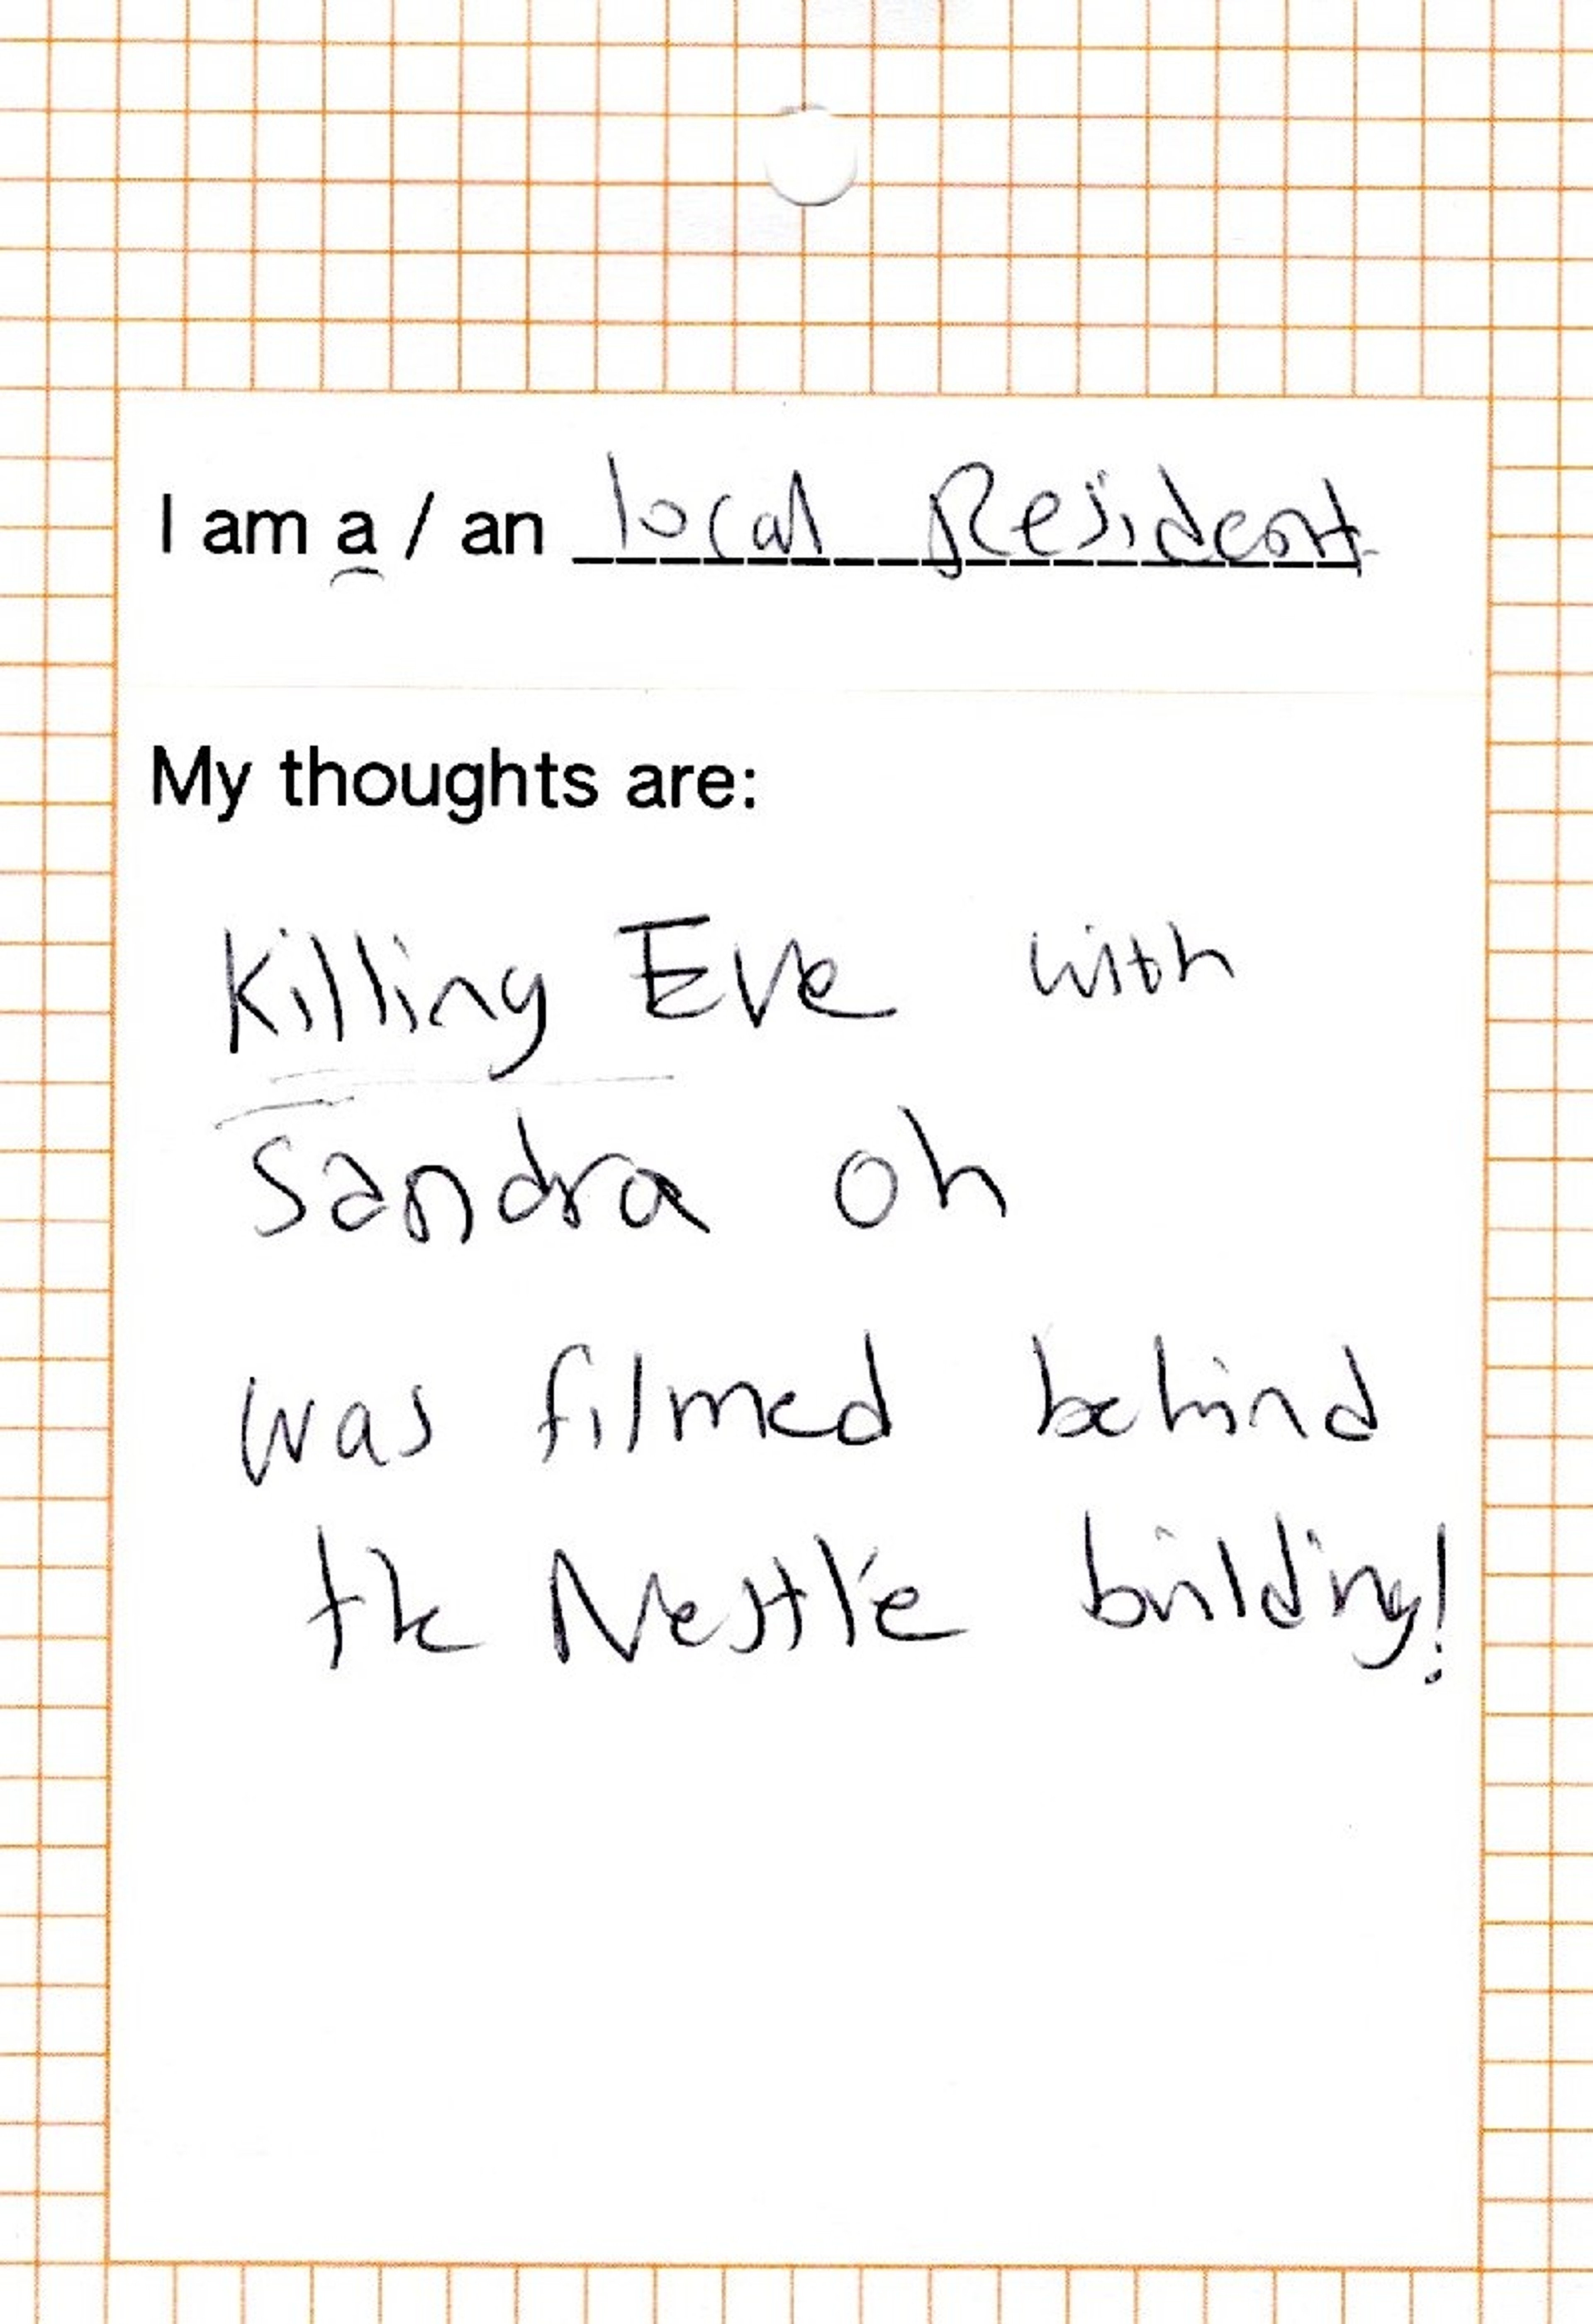 I am a / an local Resident
My thoughts are:
Killing Eve with
Sandra Oh
was filmed behind
the Nestlé building!